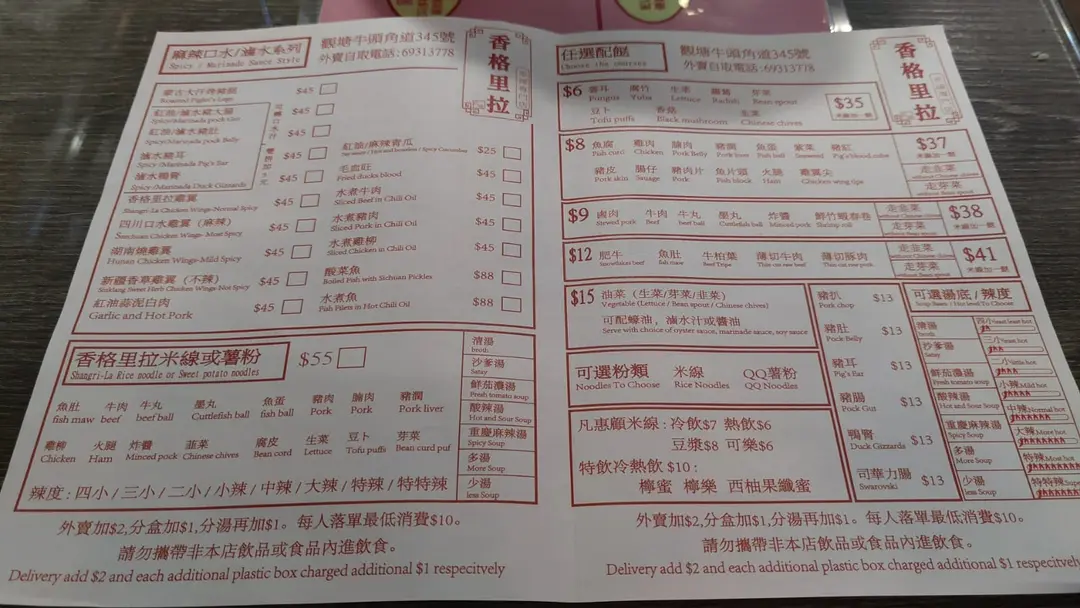 麻辣口水/滷水系列
Spicy / Marinade Sauce Style
觀塘牛頭角道345號
外賣自取電話:69313778
香格里拉
$45
紅油/滷水豬大腸
Spicy/Marinada pock
$45
紅油/滷水豬肚
Spicy/Marinada pock Belly
$45
滷水豬耳
Spicy/Marinada Pig's Ear
$45
滷水鴨腎
Spicy/Marinada Duck Gizzards
香格里拉雞翼
Shangri-La Chicken Wings-Normal Spicy
$45
四川口水雞翼(麻辣)
Szechuan Chicken Wings- Most Spicy
$45
湖南燒雞翼
Hunan Chicken Wings-Mild Spicy
$45
新疆香草雞翼(不辣)
Sinkiang Sweet Herb Chicken Wings Not Spicy
$45
紅油蒜泥白肉
Garlic and Hot Pork
$45
紅油/麻辣青瓜
$25
毛血旺
Fried ducks blood
$45
水煮牛肉
Sliced Beef in Chili Oil
$45
水煮豬肉
Sliced Pork in Chili Oil
$45
水煮雞柳
Sliced Chicken in Chili Oil
$45
酸菜魚
Boiled Fish with Sichuan Pickles
$88
水煮魚
Fish Filets in Hot Chili Oil
$88
香格里拉米線或薯粉
Shangri-La Rice noodle or Sweet potato noodles
$55
魚肚 牛肉 牛丸 墨丸 魚蛋 豬肉 腩肉 豬膶
fish maw beef beef ball Cuttlefish ball fish ball Pork Pork Pork liver
雞柳 火腿 炸醬 韮菜 腐皮 生菜 豆卜 芽菜
Chicken Ham Minced pock Chinese chives Bean cord Lettuce Tofu puffs Bean curd puf
辣度:四小/三小/二小/小辣/中辣/大辣/特辣/特特辣
清湯
broth
沙爹湯
Satay
鮮茄濃湯
Fresh tomato soup
酸辣湯
Hot and Sour Soup
重慶麻辣湯
Spicy Soup
多湯
More Soup
少湯
less Soup
外賣加$2,分盒加$1,分湯再加$1。每人落單最低消費$10。
請勿攜帶非本店飲品或食品內進飲食。
Delivery add $2 and each additional plastic box charged additional $1 respecitvely
任選配餸
Choose the courses
觀塘牛頭角道345號
外賣自取電話:69313778
香格里拉
$6
雲耳 腐竹 生菜 蘿蔔 芽菜
Fungus Tofu Lettuce Radish Bean sprout
豆卜 香菇 韮菜
Tofu puffs Black mushroom Chinese chives
$35
$8
魚腐 雞肉 腩肉 豬膶 魚蛋 紫菜 豬紅
Fish curd Chicken Pork Belly Pork liver Fish ball Seaweed Pig's blood cubes
豬皮 腸仔 豬肉片 魚片頭 火腿 雞翼尖
Pork skin Sausage Pork Fish block Ham Chicken wing tips
$37
走韮菜
走芽菜
$9
鹵肉 牛肉 牛丸 墨丸 炸醬 鮮竹蝦春卷
Stewed pork Beef Beef ball Cuttlefish ball Minced pork Shrimp roll
走韮菜
走芽菜
$38
$12
肥牛 魚肚 牛柏葉 薄切牛肉 薄切豚肉
Snowflakes beef fish maw Beef Tripe Thin cut raw beef Thin cut raw pork
走韮菜
走芽菜
$41
$15
油菜(生菜/芽菜/韮菜)
Vegetable (Lettuce / Bean sprout / Chinese chives)
可配蠔油,滷水汁或醬油
Serve with choice of oyster sauce, marinade sauce, soy sauce
可選粉類 米線 QQ薯粉
Noodles To Choose Rice Noodles QQ Noodles
凡惠顧米線:冷飲$7 熱飲$6
豆漿$8 可樂$6
特飲冷熱飲$10:
檸蜜 檸樂 西柚果纖蜜
豬扒 $13
Pork chop
豬肚 $13
Pock Belly
豬耳 $13
Pig's Ear
豬腸 $13
Pock Gut
鴨腎 $13
Duck Gizzards
司華力腸 $13
Swarovski
可選湯底/辣度
清湯
broth
沙爹湯
Satay
鮮茄濃湯
Fresh tomato soup
酸辣湯
Hot and Sour Soup
重慶麻辣湯
Spicy Soup
多湯
More Soup
少湯
less Soup
四小
三小
二小
小辣 Mild hot
中辣 Normal hot
大辣 More hot
特辣 Most hot
特特辣
外賣加$2,分盒加$1,分湯再加$1。每人落單最低消費$10。
請勿攜帶非本店飲品或食品內進飲食。
Delivery add $2 and each additional plastic box charged additional $1 respecitvely